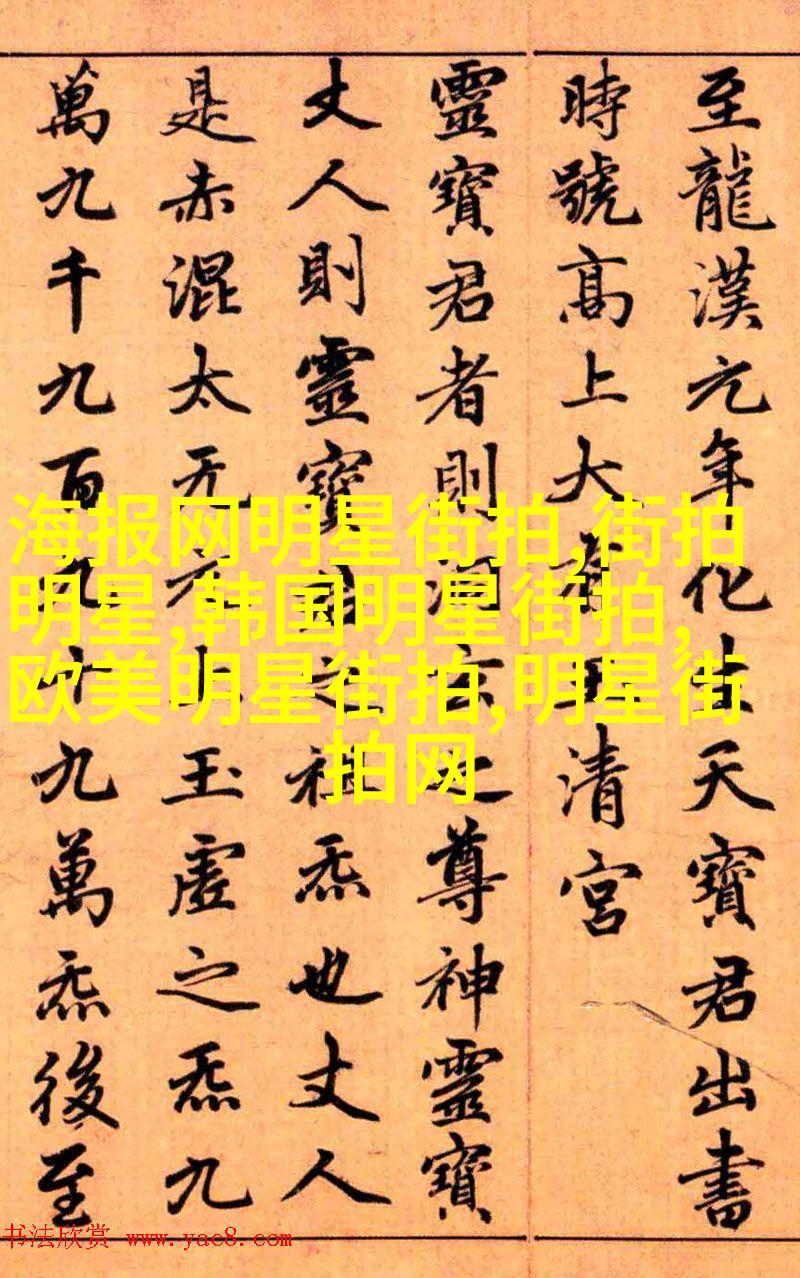 至龍漢元年化生天寶君出書
時號高上大有玉清宮
靈寶君者則洞玄之尊神靈寶
丈人則靈寶君之祖炁也丈人
是赤混太无元上玉虛之炁九
萬九千九百九十九萬炁後至
海报网明星街拍,街拍
明星,韩国明星街拍,
欧美明星街拍,明星街
拍网
书法欣赏 www.yac8.com